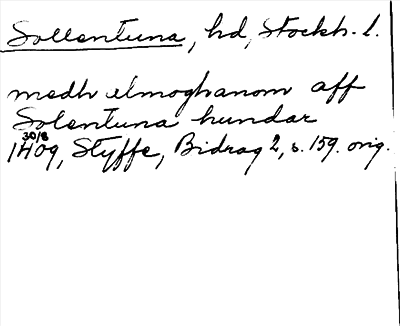 Sollentuna, hd, Stockh. l.
medh elmoghanom aff
Solentuna hundar
30/8
1409, Styffe, Bidrag 2, s. 159. orig.